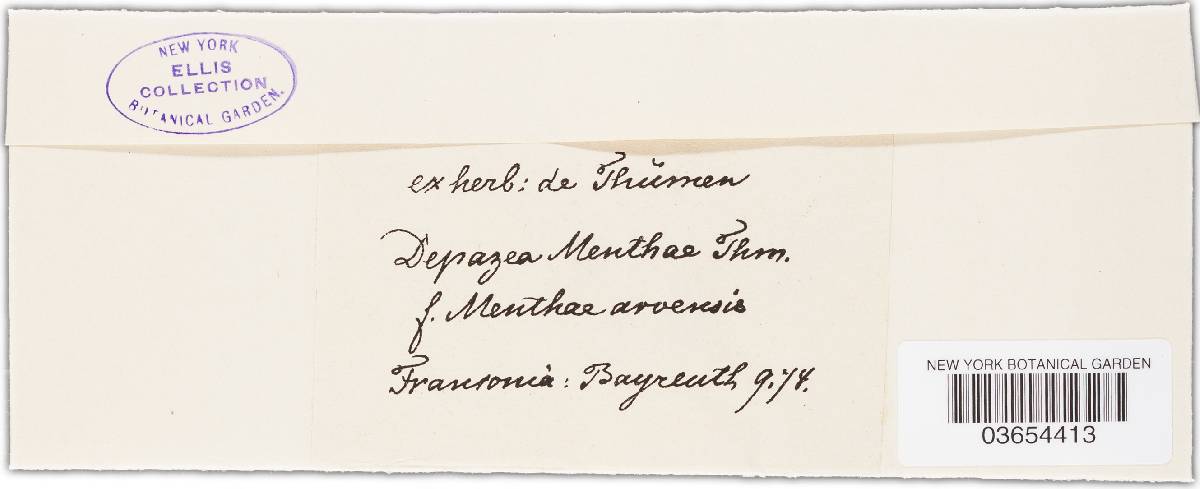 NEW YORK
ELLIS
COLLECTION
BOTANICAL GARDEN.
ex herb: de Thümen
Depazea Menthae Thm.
f. Menthae arvensis
Franconia: Bayreuth 9.74.
NEW YORK BOTANICAL GARDEN
03654413